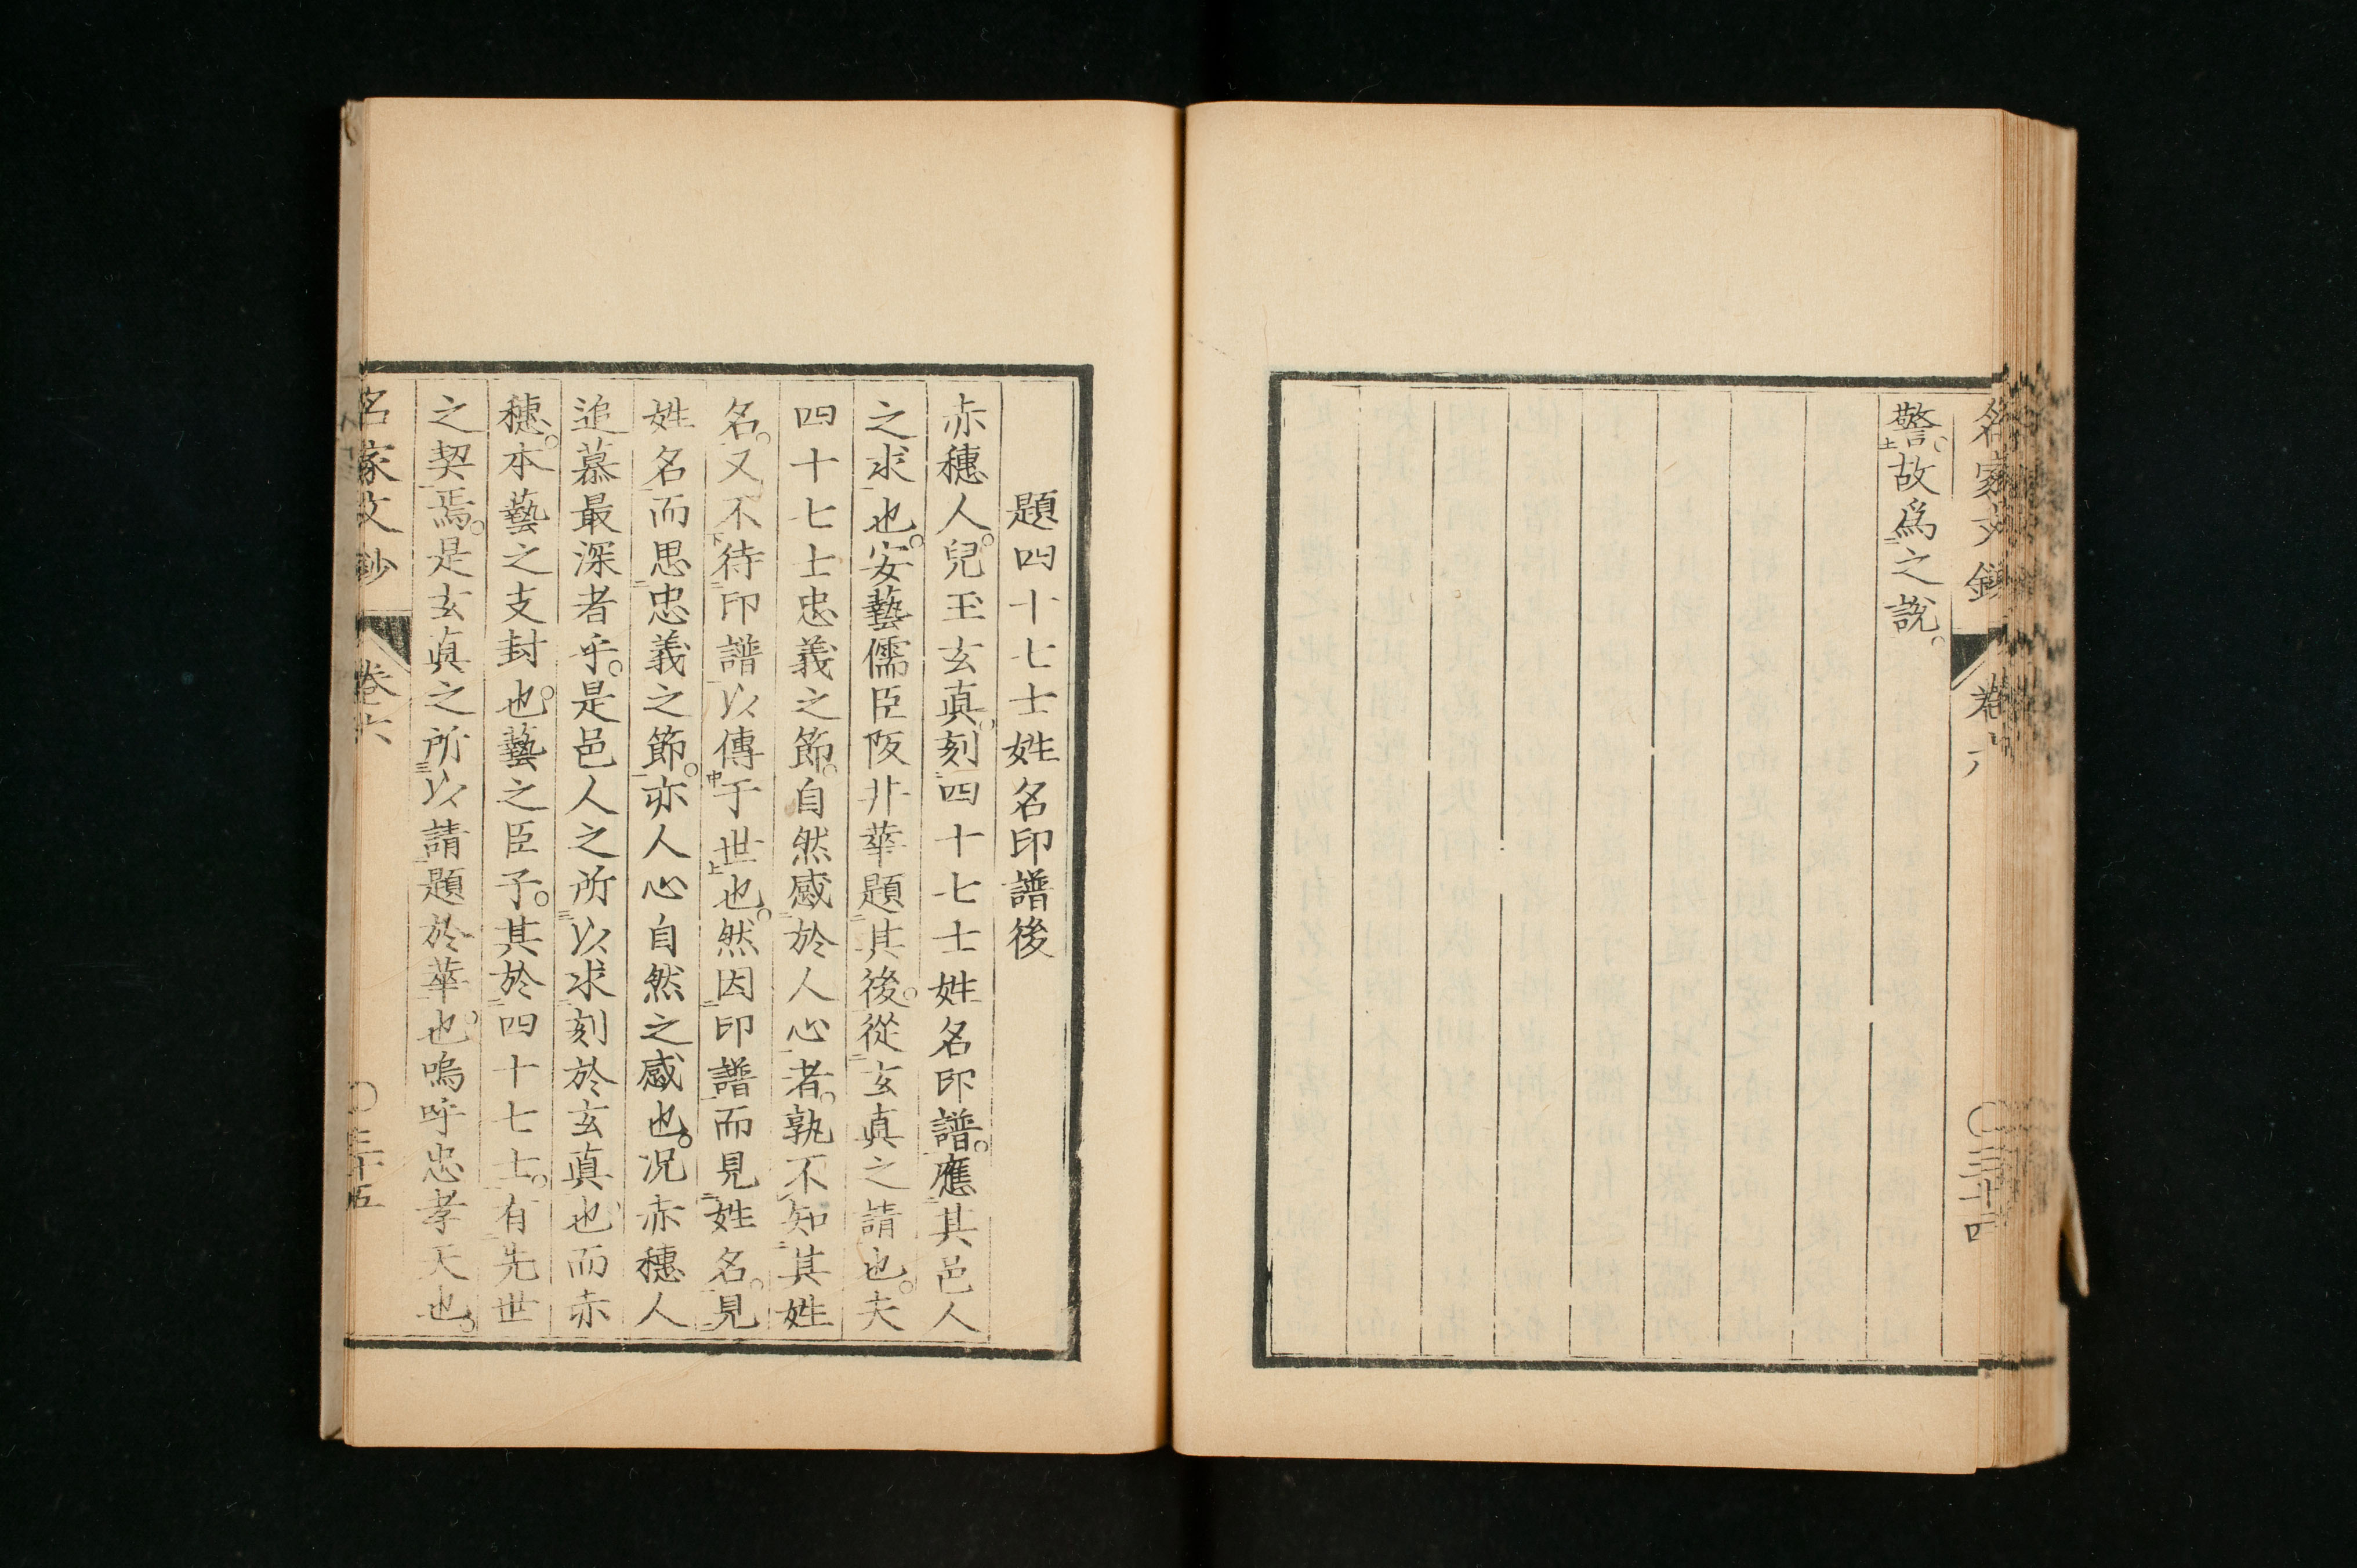 名家文鈔　卷六　〇三十四
警。故爲之說。
題四十七士姓名印譜後
赤穗人。兒玉玄眞。刻四十七士姓名印譜。應其邑人
之求也。安藝儒臣阪井華題其後。從玄眞之請也。夫
四十七士忠義之節。自然感於人心者。孰不知其姓
名。又不待印譜以傳于世也。然因印譜而見姓名。見
姓名而思忠義之節。亦人心自然之感也。况赤穗人
追慕最深者乎。是邑人之所以求刻於玄眞也而赤
穗。本藝之支封也。藝之臣子。其於四十七士。有先世
之契焉。是玄眞之所以請題於華也。嗚呼忠孝天也。
名家文鈔　卷六　〇三十五